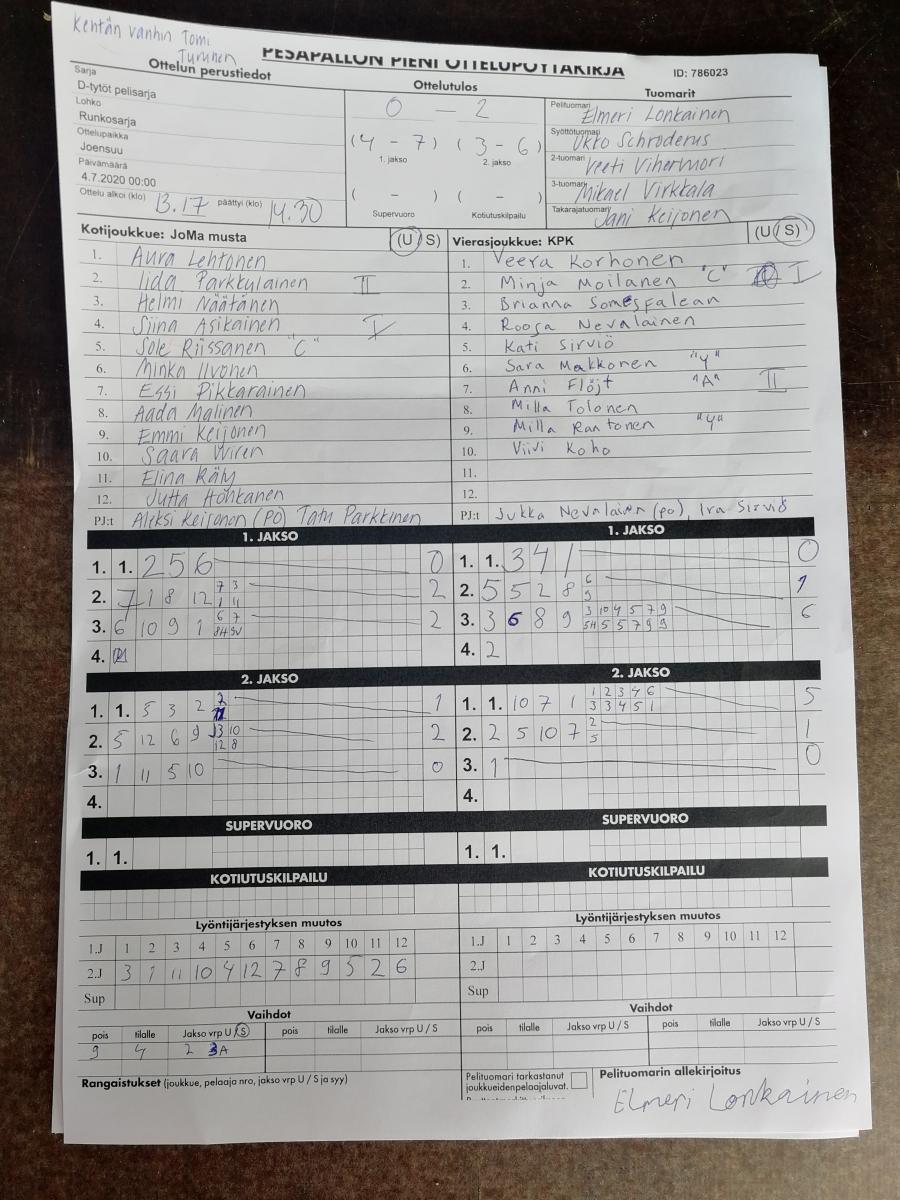 Kentän vanhin Tomi
Turunen
PESÄPALLON PIENI OTTELUPÖYTÄKIRJA ID: 786023
Ottelun perustiedot Ottelutulos Tuomarit
Sarja
D-tytöt pelisarja
Lohko
Runkosarja
Ottelupaikka
Joensuu
Päivämäärä
4.7.2020 00:00
Ottelu alkoi (klo) 13.17 päättyi (klo) 14.30
0 - 2
(4 - 7) (3 - 6)
1. jakso 2. jakso
( - ) ( - )
Supervuoro Kotiutuskilpailu
Pelituomari Elmeri Lonkainen
Syöttötuomari Ukko Schroderus
2-tuomari Veeti Vihermori
3-tuomari Mikael Virkkala
Takarajatuomari Jani Keijonen
Kotijoukkue: JoMa musta (U/S)
1. Aura Lehtonen
2. Iida Parkkulainen II
3. Helmi Näätänen
4. Siina Asikainen I
5. Sole Riissanen "C"
6. Minka Ilvonen
7. Essi Pikkarainen
8. Aada Malinen
9. Emmi Keijonen
10. Saara Wiren
11. Elina Räty
12. Jutta Hohkanen
PJ:t Aleksi Keijonen (PO) Tatu Parkkinen
Vierasjoukkue: KPK (U/S)
1. Veera Korhonen
2. Minja Moilanen "C" I
3. Brianna Somesfalean
4. Roosa Nevalainen
5. Kati Sirviö
6. Sara Makkonen "Y"
7. Anni Flöjt "A" II
8. Milla Tolonen
9. Milla Rantonen "Y"
10. Viivi Koho
11.
12.
PJ:t Jukka Nevalainen (po), Ira Sirviö
1. JAKSO
1. 1. 2 5 6 0
2. 7 1 8 12 7 3 2
1 4
3. 6 10 9 1 6 7 2
4.
1. JAKSO
1. 1. 3 4 1 0
2. 5 5 2 8 6 1
9
3. 3 6 8 9 3 10 4 5 7 9 6
5H 5 5 7 9 9
4. 2
2. JAKSO
1. 1. 5 3 2 2 1
11
2. 5 12 6 9 3 10 2
12 8
3. 1 11 5 10 0
4.
2. JAKSO
1. 1. 10 7 1 1 2 3 4 6 5
3 3 4 5 1
2. 2 5 10 7 2 1
5
3. 1 0
4.
SUPERVUORO SUPERVUORO
1. 1. 1. 1.
KOTIUTUSKILPAILU KOTIUTUSKILPAILU
Lyöntijärjestyksen muutos
1.J 1 2 3 4 5 6 7 8 9 10 11 12
2.J 3 1 11 10 4 12 7 8 9 5 2 6
Sup
Lyöntijärjestyksen muutos
1.J 1 2 3 4 5 6 7 8 9 10 11 12
2.J
Sup
Vaihdot
pois tilalle Jakso vrp U / S pois tilalle Jakso vrp U / S
9 4 2 3A
Vaihdot
pois tilalle Jakso vrp U / S pois tilalle Jakso vrp U / S
Rangaistukset (joukkue, pelaaja nro, jakso vrp U / S ja syy)
Pelituomari tarkastanut
joukkueidenpelaajaluvat.
Pelituomarin allekirjoitus
Elmeri Lonkainen